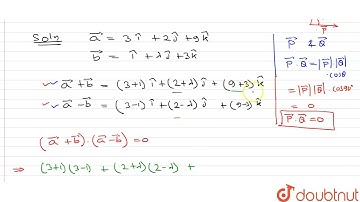 Soln a⃗ = 3 î + 2ĵ + 9k̂
b⃗ = î + λĵ + 3k̂
✓ a⃗ + b⃗ = (3+1) î + (2+λ) ĵ + (9+3) k̂
✓ a⃗ - b⃗ = (3-1) î + (2-λ) ĵ + (9-3) k̂
(a⃗ + b⃗) · (a⃗ - b⃗) = 0
⇒ (3+1)(3-1) + (2+λ)(2-λ) +
P⃗ & Q⃗
P⃗ · Q⃗ = |P⃗| |Q⃗|
· cosθ
= |P⃗| |Q⃗| · cos90°
= 0
P⃗ · Q⃗ = 0
doubtnut